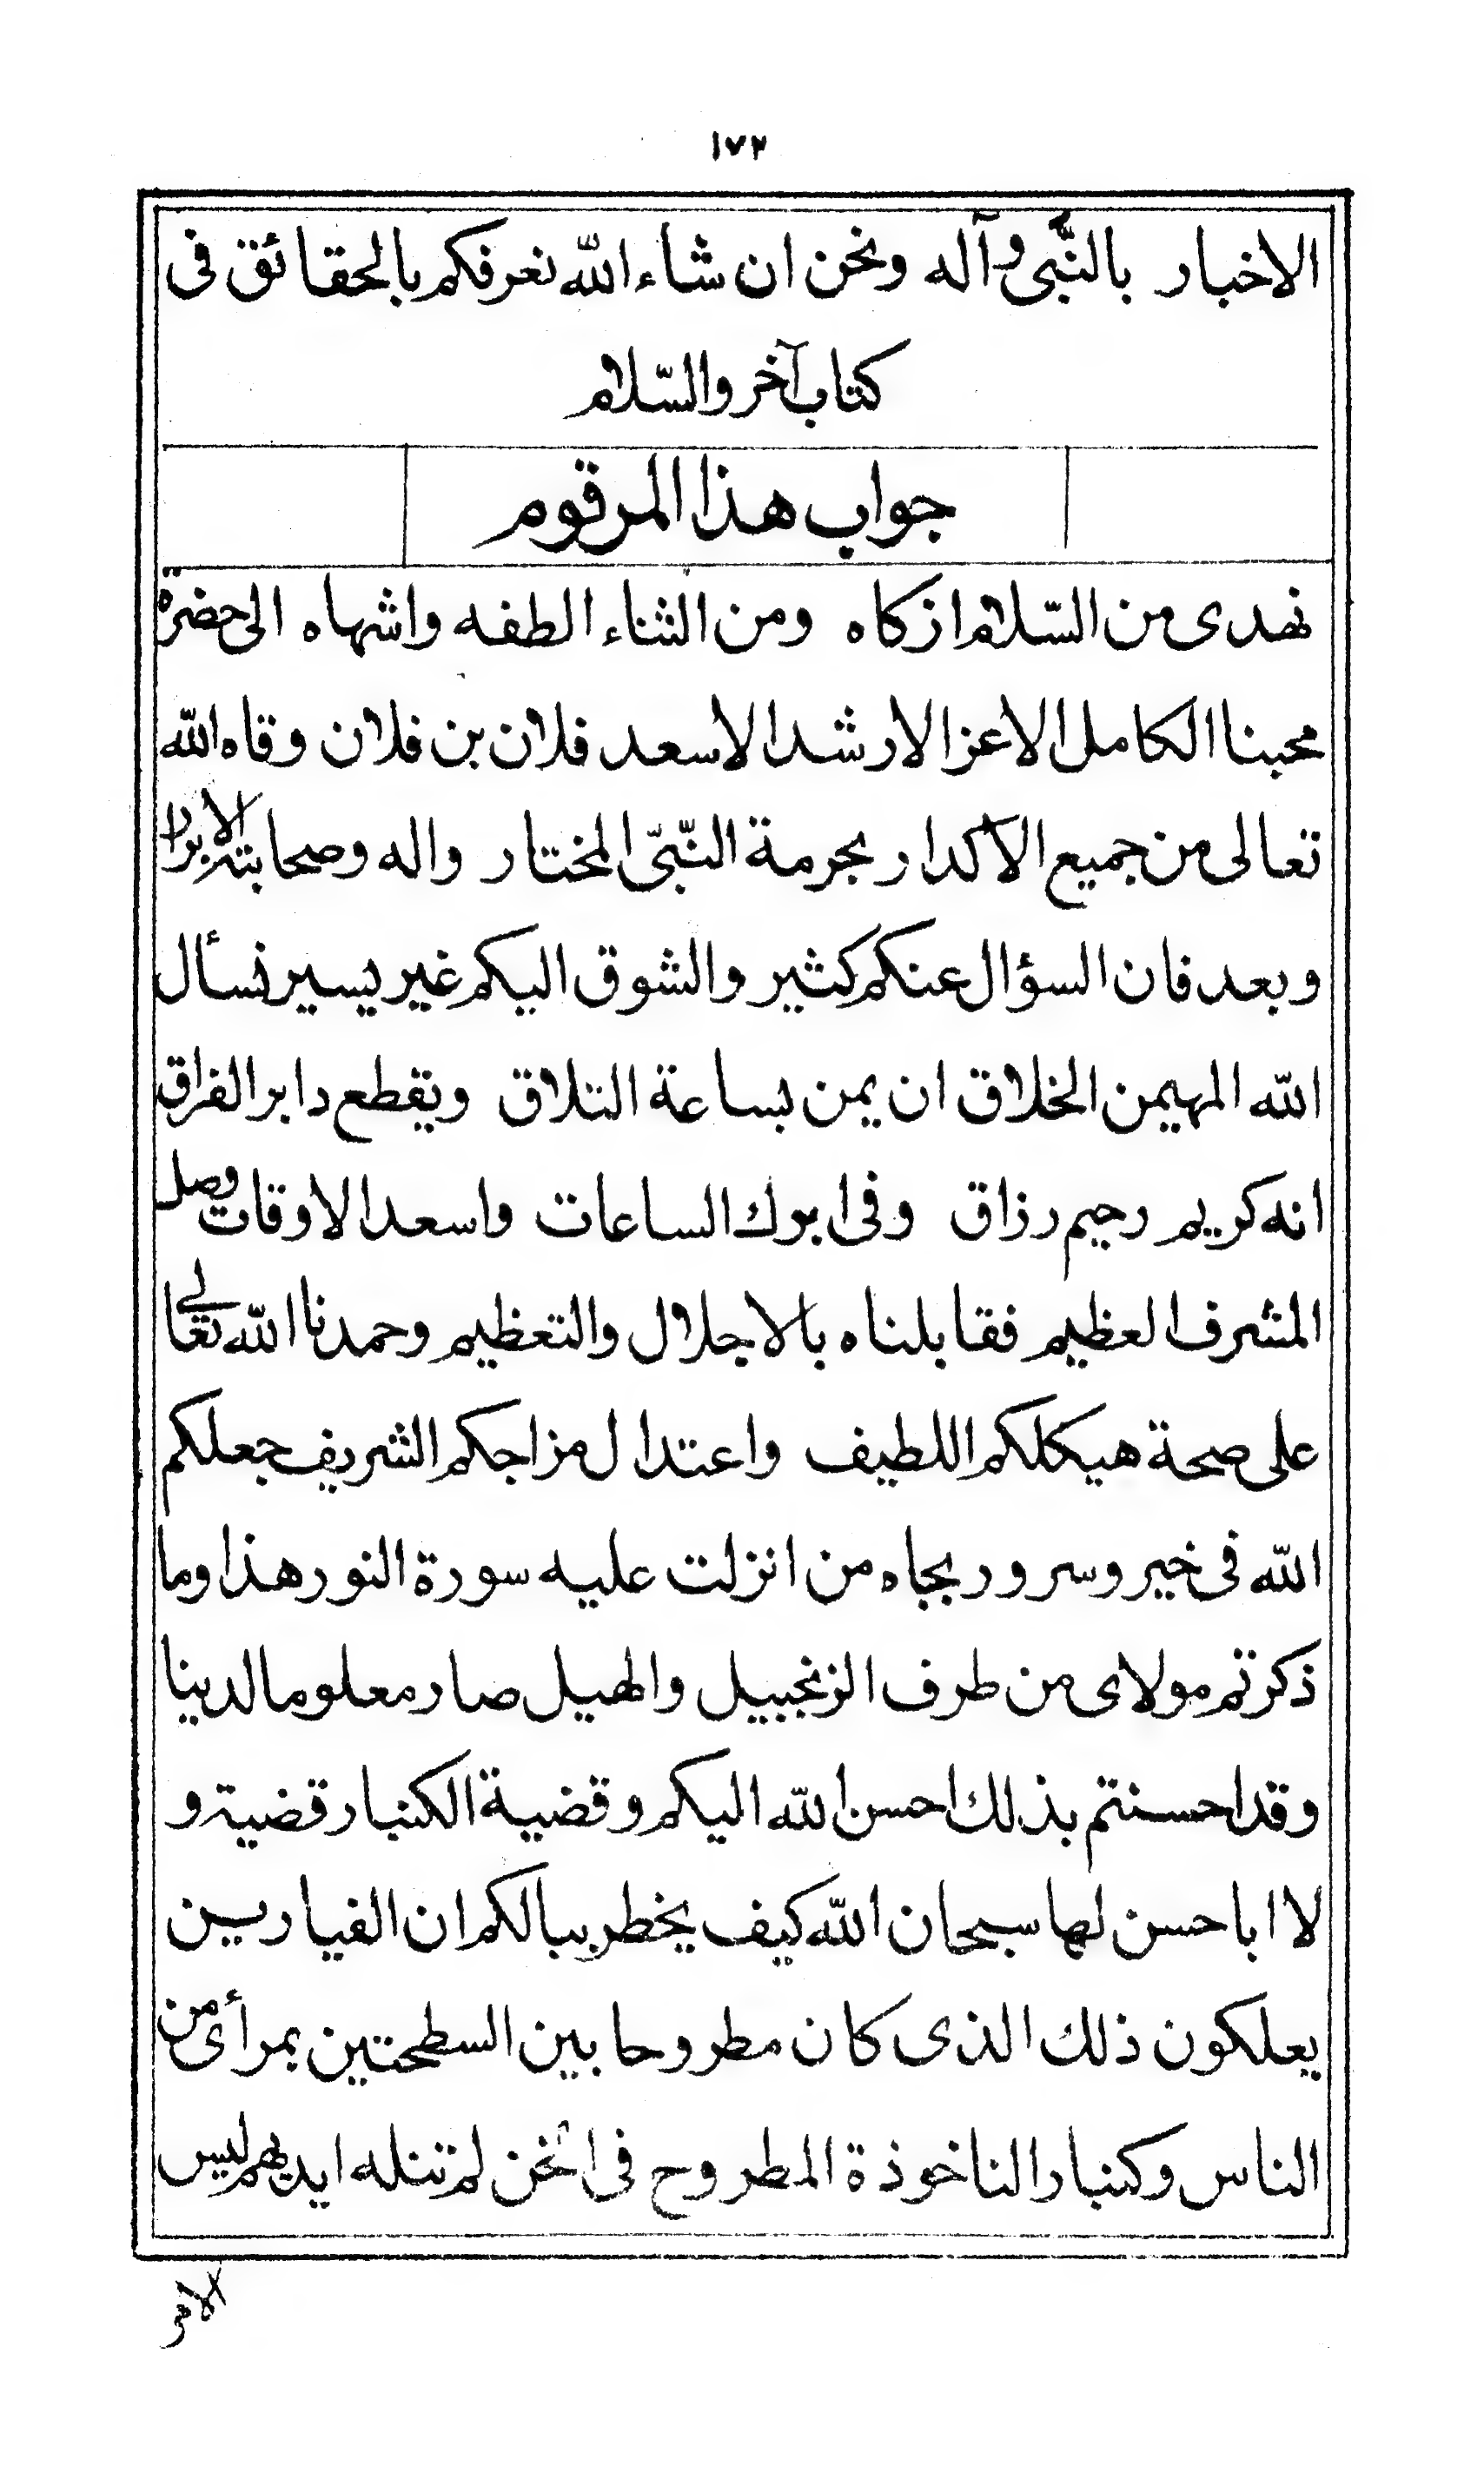 ١٧٢
الاخبار بالنَّبى وآله ونحن ان شاء اللّه نعرفكم بالحقائق فى
كتاب آخر والسّلام
جواب هذا المرقوم
نهدى من السّلام ازكاه ومن الثناء الطفه واشهاه الى حضرة
محبنا الكامل الاعز الارشد الاسعد فلان بن فلان وقاه اللّه
تعالى من جميع الاكدار بحرمة النّبىّ المختار واله وصحابته الابرار
وبعد فان السؤال عنكم كثير والشوق اليكم غير يسير نسأل
اللّه المهيمن الخلاق ان يمن بساعة التلاق ويقطع دابر الفراق
انه كريم رحيم رزاق وفى ابرك الساعات واسعد الاوقات وصل
المشرف العظيم فقابلناه بالاجلال والتعظيم وحمدنا اللّه تعالى
على صحة هيكلكم اللطيف واعتدال مزاجكم الشريف جعلكم
اللّه فى خير وسرور بجاه من انزلت عليه سورة النور هذا وما
ذكرتم مولاى من طرف الزنجبيل والهيل صار معلوما لدينا
وقد احسنتم بذلك احسن اللّه اليكم وقضية الكنبار قضية و
لا ابا حسن لها سبحان اللّه كيف يخطر ببالكم ان الفيارسين
يعلكون ذلك الذى كان مطروحا بين السطحتين بمرأى من
الناس وكنبار الناخوذة المطروح فى الخن لم تنله ايديهم ليس
الامر